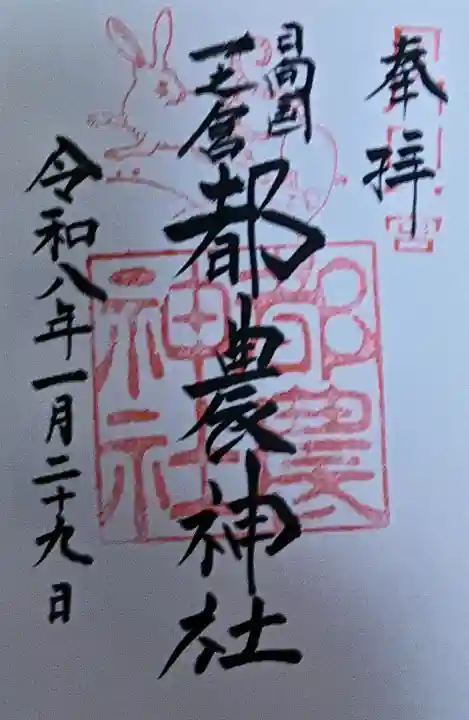 奉拝
日向国
一之宮
都農神社
都農
神社
令和八年一月二十九日